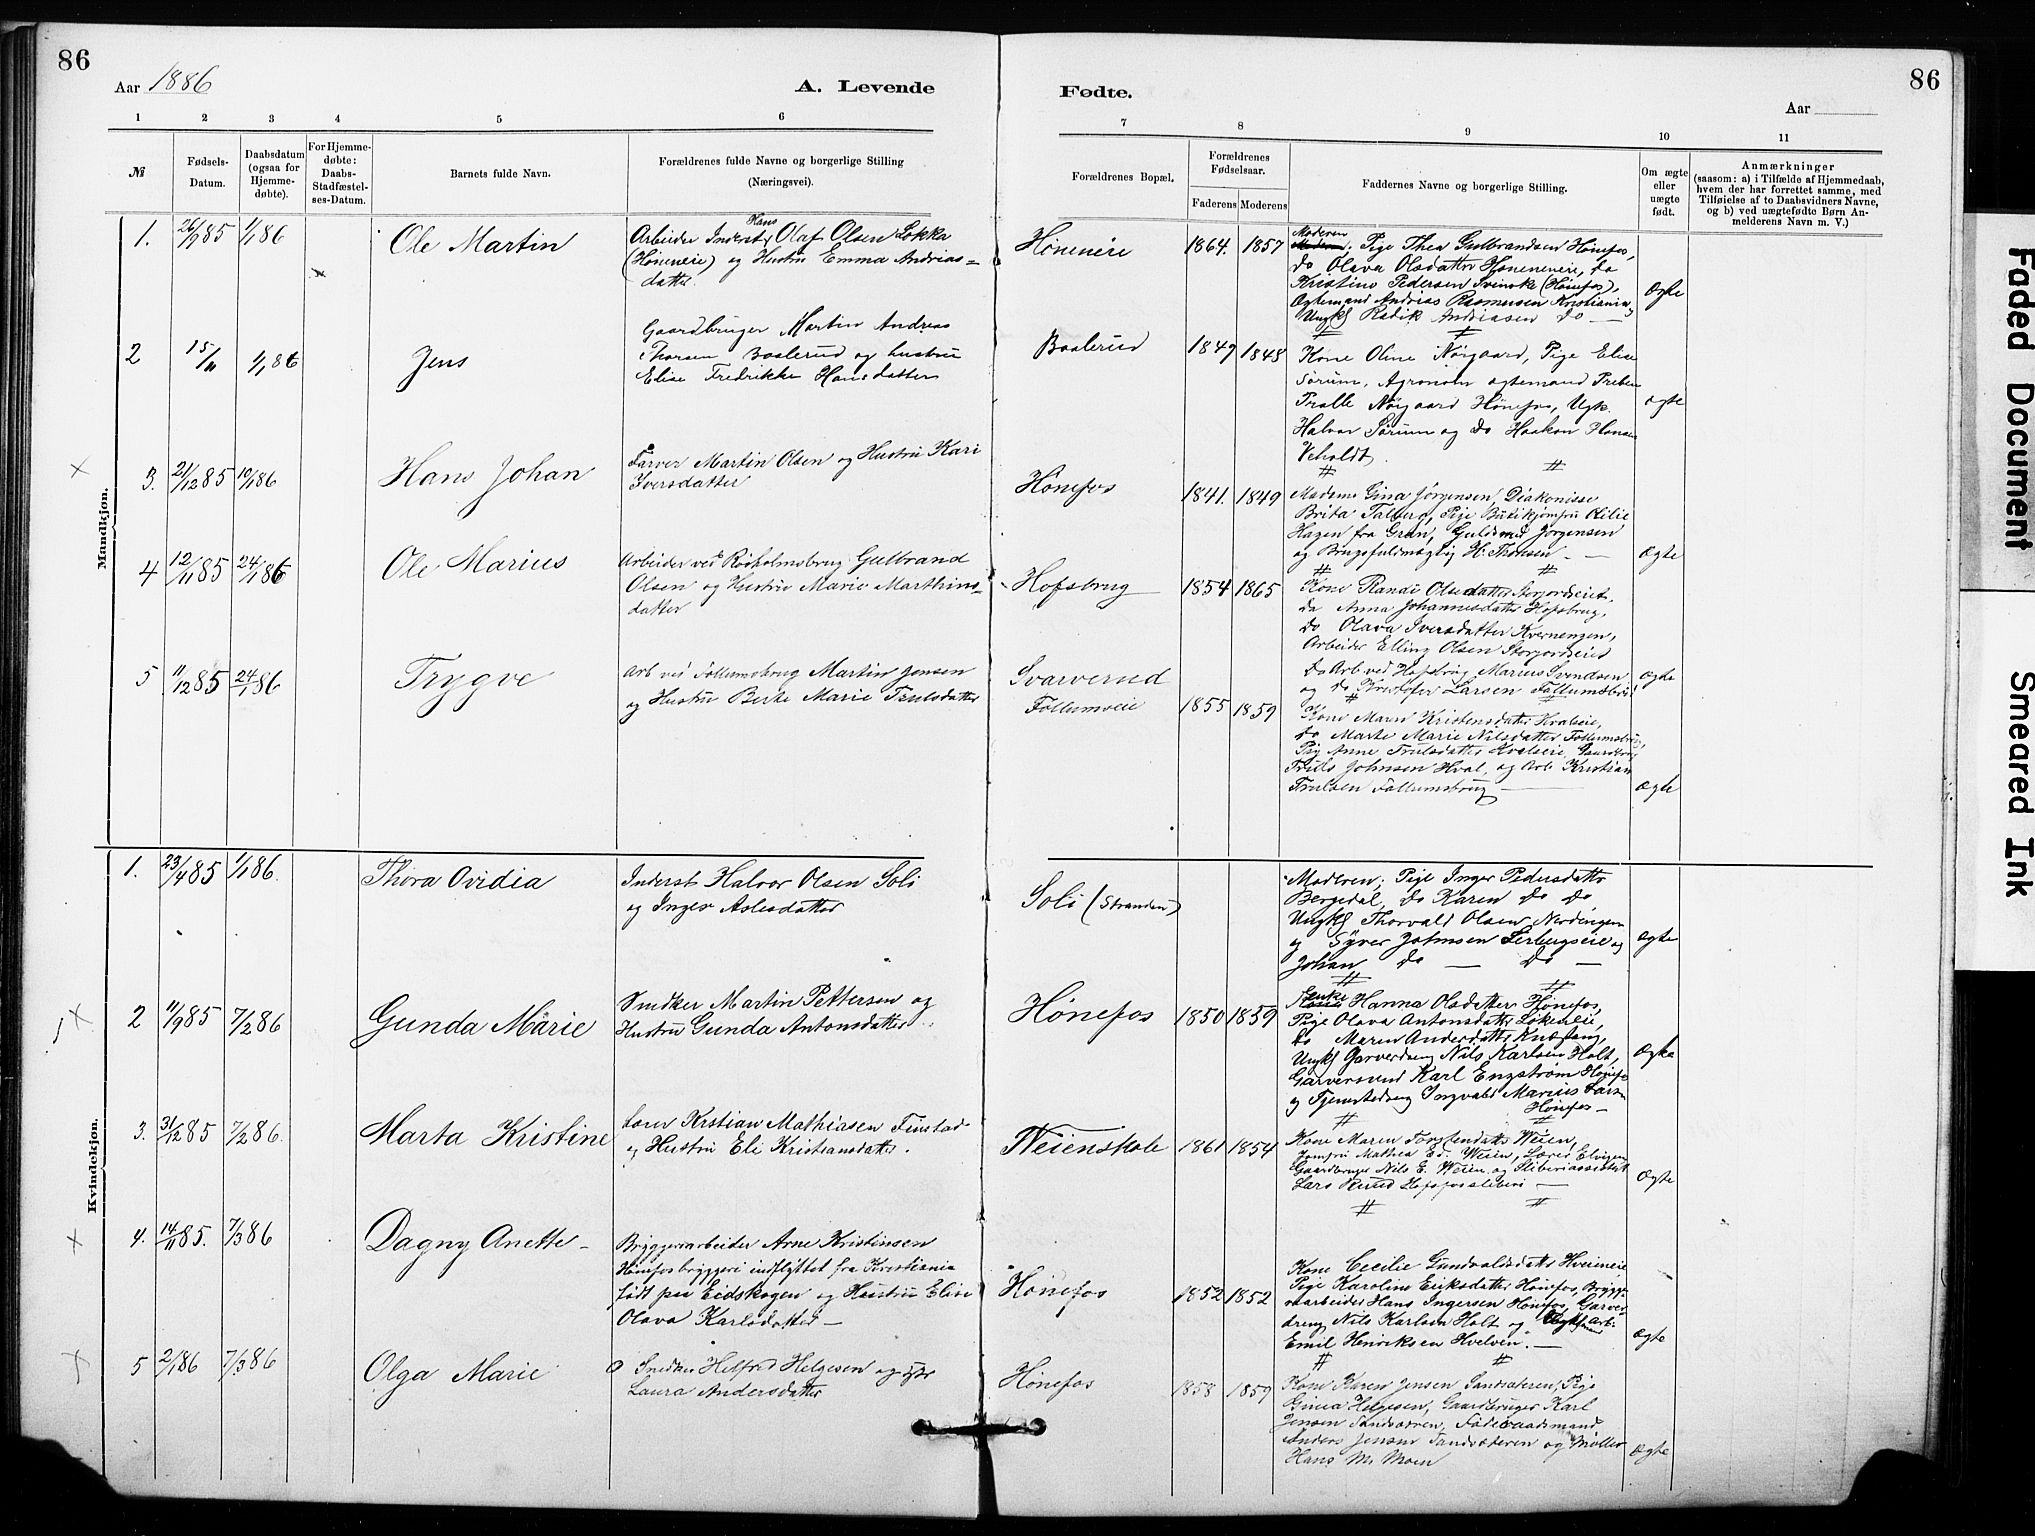 86
Aar 1886
A. Levende
1 2 3 4 5 6
№
Fødsels-
Datum.
Daabsdatum
(ogsaa for
Hjemme-
døbte).
For Hjemme-
døbte:
Daabs-
Stadfæstel-
ses-Datum.
Barnets fulde Navn.
Forældrenes fulde Navne og borgerlige Stilling
(Næringsvei).
Mandkjøn.
1. 26/9 85 1/1 86 Ole Martin
Hans
Arbeider Inderst Olaf Olsen Løkka
(Høneneie) og Hustru Emma Andreas=
datter
2 15/11 1/1 86 Jens
Gaardbruger Martin Andreas
Thorsen Baalerud og hustru
Elise Fredrikke Hansdatter
3. 21/12 85 10/1 86 Hans Johan
Farver Martin Olsen og Hustru Kari
Iversdatter
4 12/11 85 24/1 86 Ole Marius
Arbeider ved Gulbrand
Olsen og Hustru Marie Marthins=
datter
5 11/12 85 24/1 86 Trygve
Arb ved Follumsbrug Martin Jensen
og Hustru Berte Marie Trulsdatter
Kvindekjøn.
1. 23/4 85 1/1 86. Thora Ovidia
Inderst Halvor Olsen Soli
og Inger Aslesdatter
2 11/9 85 7/2 86 Gunda Marie
Snedker Martin Pettersen og
Hustru Gunda Antonsdatter
3. 31/12 85 7/2 86. Marta Kristine
Lærer Kristian Mathiasen Finstad
og Hustru Eli Kristiansdatter.
4. 14/11 85. 7/3 86 Dagny Anette
Bryggeriarbeider Arne Kristinsen
Hønefos bryggeri indflyttet fra Kristiania
født paa Eidskogen og Hustru Elise
Olava Karlsdatter
5 2/1 86 7/3 86 Olga Marie
Snedker Helfred Helgesen og
Laura Andersdatter
Fødte.
86
Aar
7 8 9 10 11
Forældrenes Bopæl.
Forældrenes
Fødselsaar.
Faderens Moderens
Faddernes Navne og borgerlige Stilling.
Om ægte
eller
uægte
født.
Anmærkninger
(saasom: a) i Tilfælde af Hjemmedaab,
hvem der har forrettet samme, med
Tilføielse af to Daabsvidners Navne,
og b) ved uægtefødte Børn An-
melderens Navn m. V.)
Høneneie 1864. 1857
Moderen
Pige Thea Gulbrandsen Hønefos,
do Olava Olsdatter Høneneie, do
Kristine Pedersen Svinske (Hønefos),
Ogtemand Andreas Rasmussen Kristiania,
Ungkl Andreasen do
Ægte
Baalerud 1849 1848
Kone Oline Nørgaard, Pige Elise
Sørum, Agronom ogtemand Preben
Nørgaard Hønefos, Ugk.
Halvor Sørum og do Haakon Hansen
Veholdt
ægte
Hønefos 1841. 1849
Madame Gina Jørgensen, Diakonisse
Brita Pige Butikjomfru Otilie
Hagen fra Gran, Guldsmed Jørgensen
og Brugsfuldmægtig H. Thorsen
Ægte
Hofsbrug 1854 1865
Kone Randi Olsdatter
do Anna Johannesdatter Hofsbrug,
do Olava Iversdatter Kvernengen,
Arbeider Elling Olsen
do Arb ved Hofsbrug Marius Svendsen
og do Kristofer Larsen Follumsbrug
ægte
Svarverud
Follumseie 1855 1859
Kone Maren Kristensdatter Hvalseie,
do Marte Marie Nilsdatter Follumsbrug,
Pige Anne Trulsdatter Hvalseie, Gaardbrug
Truls Johnsen Hval, og Arb. Kristian
Trulsen Follumsbrug
Ægte
Soli (Stranden)
Moderen; Pige Inger Pedersdatter
Bergedal, do Karen do do
Ungkl Thorvald Olsen Nordengen
og Syver Johnsen Lerbergseie og
Johan do — do —
Ægte
Hønefos 1850 1859
Enke
Hanna Olsdatter Hønefos,
Pige Olava Antonsdatter Løkeneie,
do Maren Andersdatter
Ungkl Garverdreng Nils Karlsen Holt,
Garversvend Karl Engstrøm Hønefos
og Tjenestedreng Ingvald Marius Larsen
Hønefos
Ægte
Veienskole 1861 1854
Kone Maren Torstensdatter Weien,
Jomfru Mathea Ed. Weien, Lærer Elvigen
Gaardbruger Nils E. Weien og Sliberiassistent
Lars Hofsfossliberi
Ægte
Hønefos 1852 1852
Kone Cecilie Gundvaldsdatter
Pige Karoline Eriksdatter Hønefos, Brygge-
riarbeider Hans Ingersen Hønefos, Garver
dreng Nils Karlsen Holt og arb.
Emil Henriksen Hvelven.
Ægte
Hønefos 1858 1859
Kone Karen Jensen Sandsæteren, Pige
Ginea Helgesen, Gaardbruger Karl
Jensen Sandsæteren,
Anders Jensen Sandsæteren og Møller
Hans M. Moen
Ægte
Faded Document
Smeared Ink